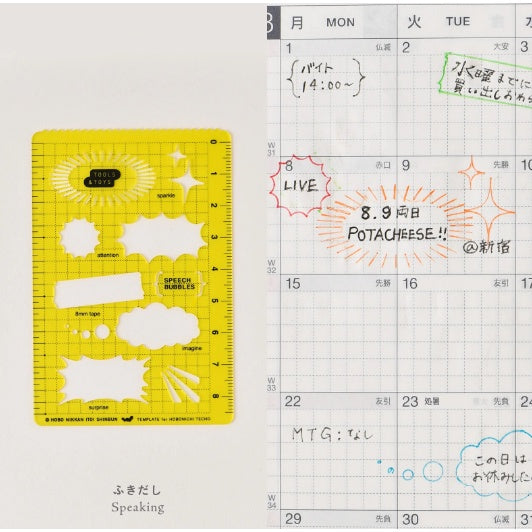 TOOLS
& TOYS
sparkle
attention
SPEECH
BUBBLES
8mm tape
imagine
surprise
© HOBO NIKKAN ITOI SHINBUN
TEMPLATE for HOBONICHI TECHO
0
1
2
3
4
5
6
7
8
ふきだし
Speaking
8
月 MON
火 TUE
1 仏滅
2 大安
3
バイト
14:00〜
水曜までに
買い出しおわ
W
31
8 赤口
9 先勝
10
LIVE
8.9両日
POTACHEESE!!
@新宿
W
32
15 先勝
16 友引
17
W
33
22 友引
23 処暑 先負
24
MTG:なし
この日は
お休みした
W
34
29 先負
30 仏滅
31